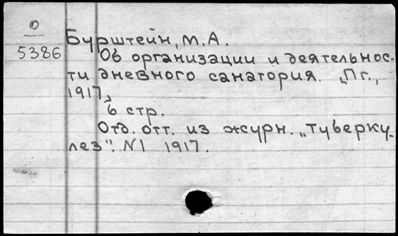 0
5386
Бурштейн, М.А.
Об организации и деятельнос-
ти дневного санатория. [Пг.,
1917]
6 стр.
Отд. отт. из журн. „Туберку-
лез". N1 1917.